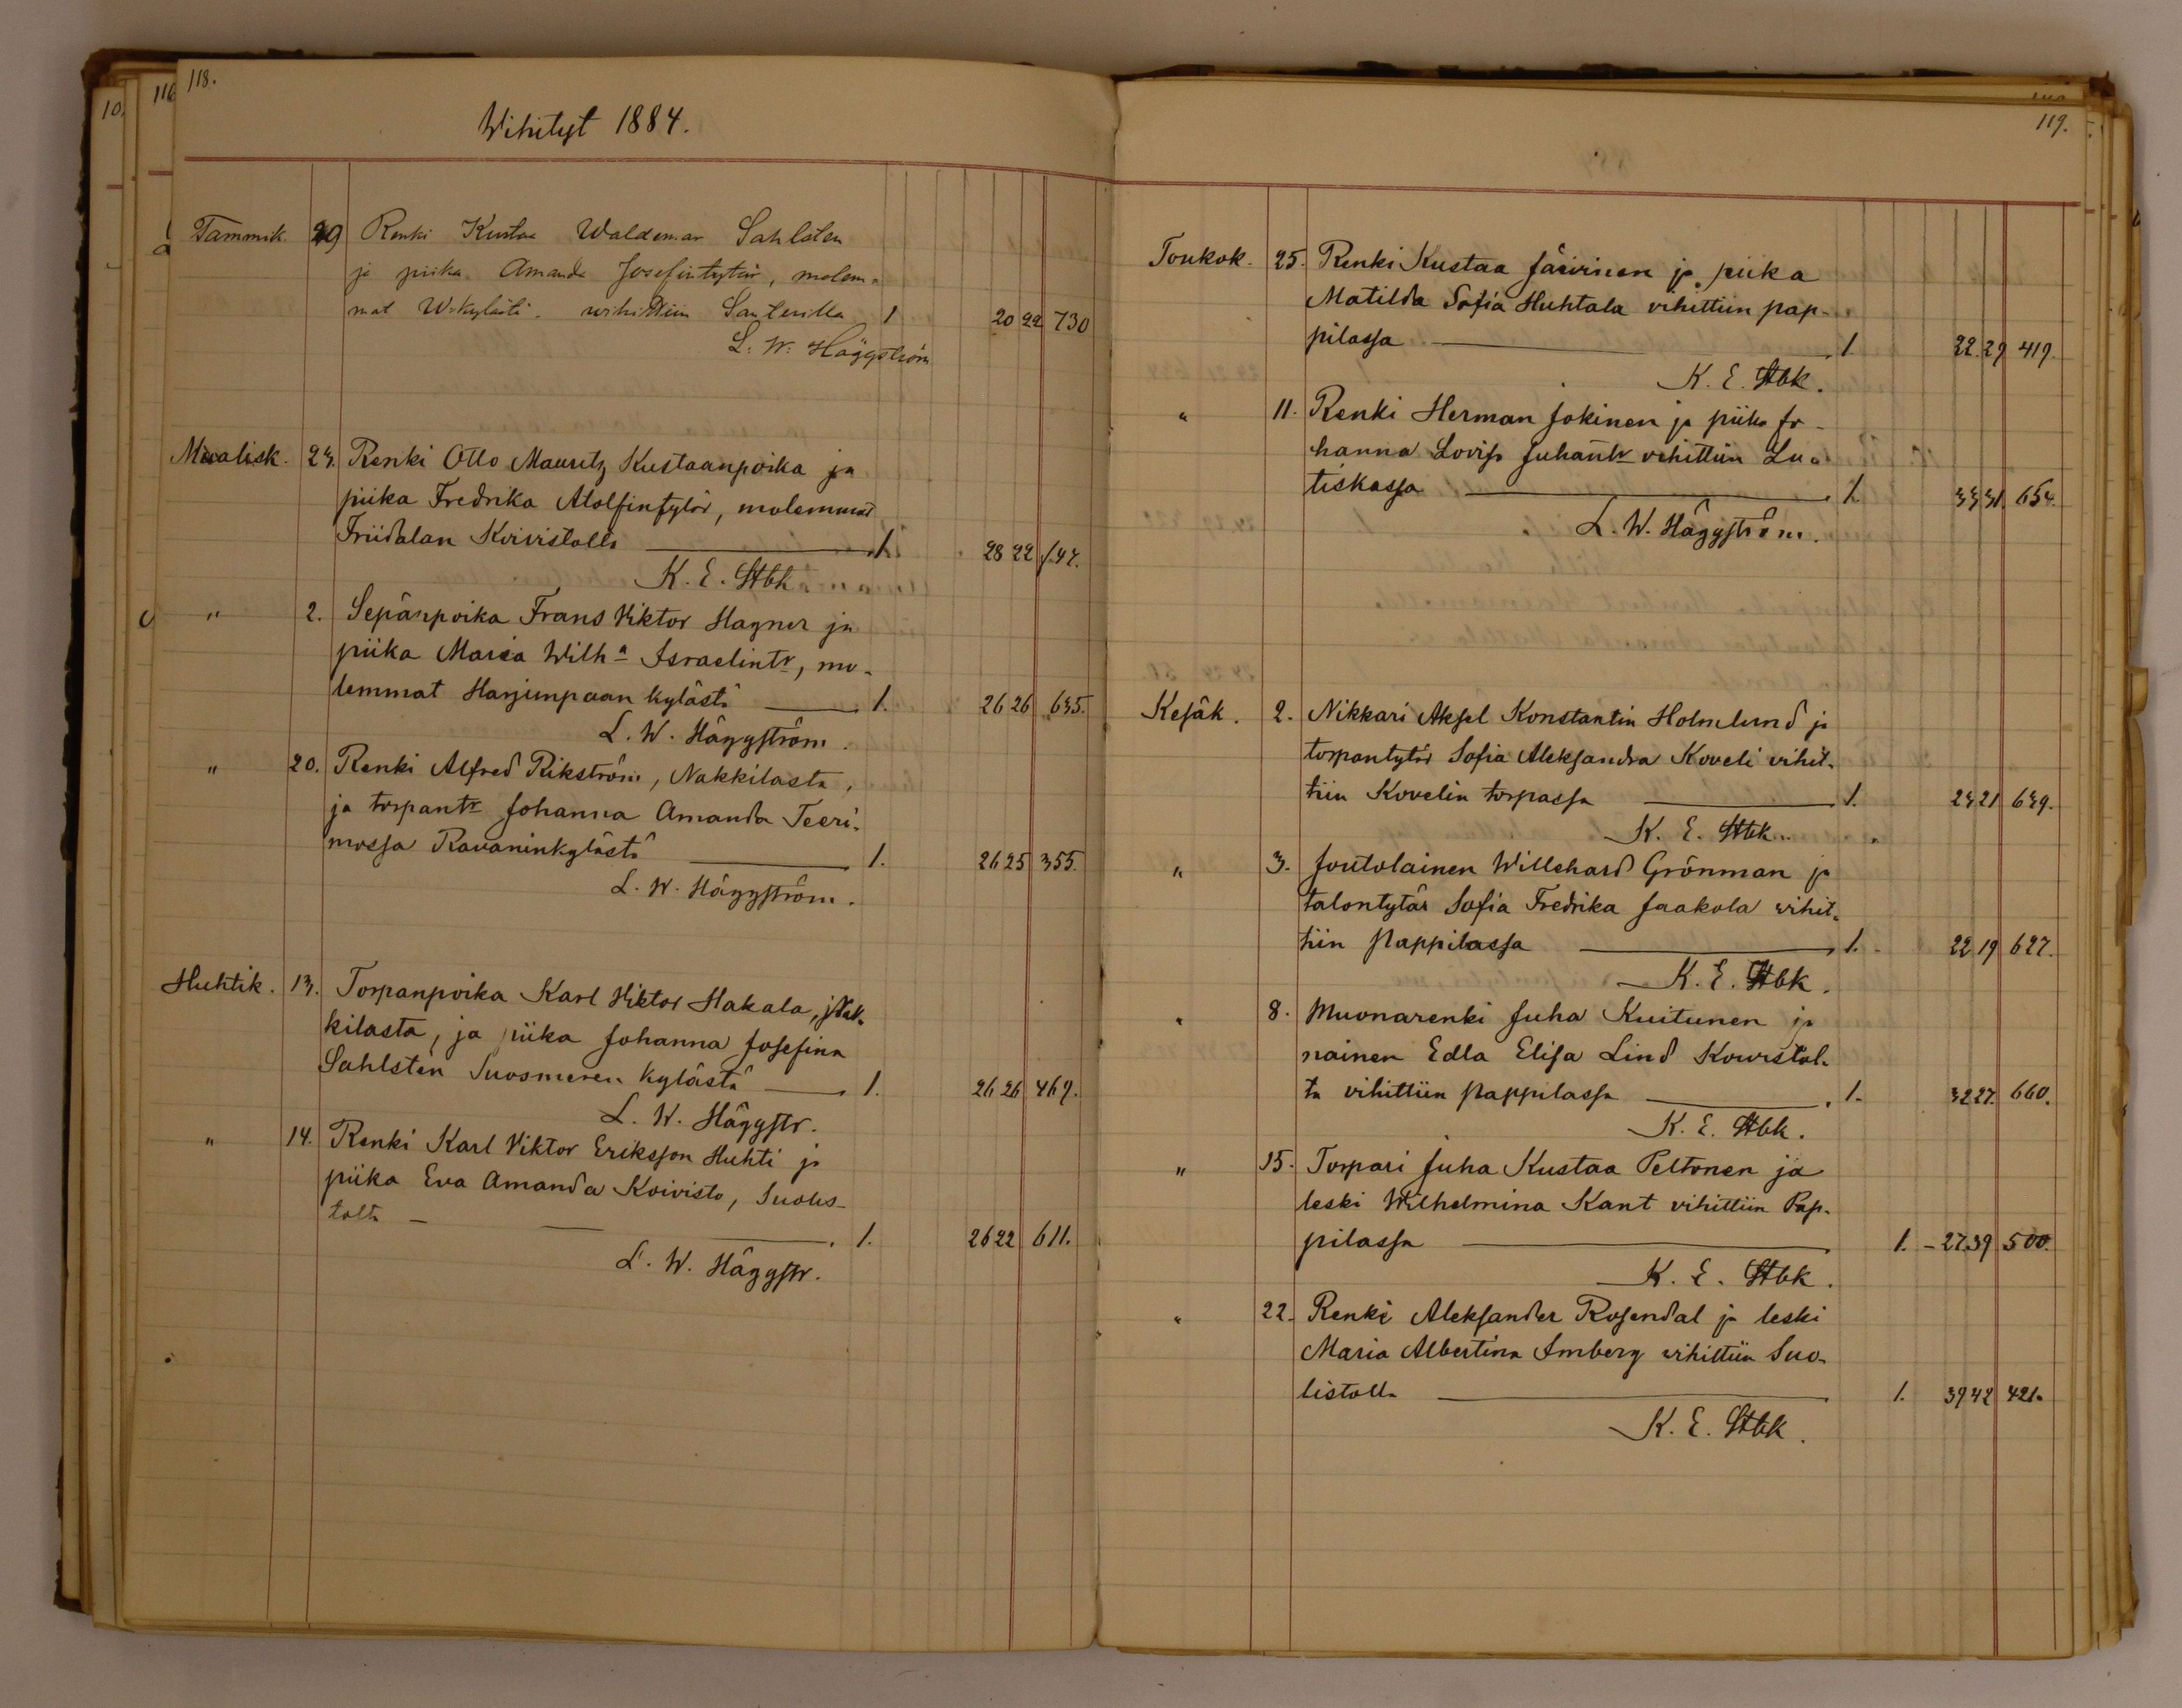 118.
Wihityt 1884.
Tammik. 29 Renki Kustaa Waldemar Sahlsten
ja piika Amanda Josefintytär, molem-
mat W:kylästä. wihittiin Santerilla 1 20 22 730
L. W. Häggström
Maalisk. 23. Renki Otto Mauritz Kustaanpoika ja
piika Fredrika Atolfintytär, molemmat
Friidalan Koivistolta 1. 28 22
K. E. Stbk
" 2. Sepänpoika Frans Viktor Hagner ja
piika Maria Wilh:a Israelintr, mo-
lemmat Harjunpaan kylästä 1. 26 26 635.
L. W. Häggström.
" 20. Renki Alfred Rikström, Nakkilasta,
ja torpantr Johanna Amanda Teeri-
mossa Ravaninkylästä 1. 26 25 355.
L. W. Häggström.
Huhtik. 13. Torpanpoika Karl Viktor Hakala, Nak-
kilasta, ja piika Johanna Josefina
Sahlstén Suosmeren kylästä 1. 26 26 469.
L. W. Häggstr.
" 14. Renki Karl Viktor Eriksson Huhti ja
piika Eva Amanda Koivisto, Suolis-
talta 1. 26 22 611.
L. W. Häggstr.
119.
Toukok. 25. Renki Kustaa Järvinen ja piika
Matilda Sofia Huhtala vihittiin pap-
pilassa 1. 22. 29 419.
K. E. Stbk.
" 11. Renki Herman Jokinen ja piika Jo-
hanna Lovisa Juhantr vihittiin Lu-
tiskassa 1. 33 31 654.
L. W. Häggström.
Kesäk. 2. Nikkari Aksel Konstantin Holmlund ja
torpantytär Sofia Aleksandra Koveli vihit-
tiin Kovelin torpassa 1. 23 21 639.
K. E. Stbk.
" 3. Joutolainen Willehard Grönman ja
talontytär Sofia Fredrika Jaakola vihit-
tiin Pappilassa 1. 22 19 627.
K. E. Stbk.
" 8. Muonarenki Juha Kuitunen ja
nainen Edla Elisa Lind Kouvistol-
ta vihittiin Pappilassa 1. 32 27. 660.
K. E. Stbk.
" 15. Torpari Juha Kustaa Peltonen ja
leski Wilhelmina Kant vihittiin Pap-
pilassa 1. - 27. 39 500.
K. E. Stbk.
" 22. Renki Aleksander Rosendal ja leski
Maria Albertina Imberg vihittiin Suo-
listalla 1. 39 42 421.
K. E. Stbk.